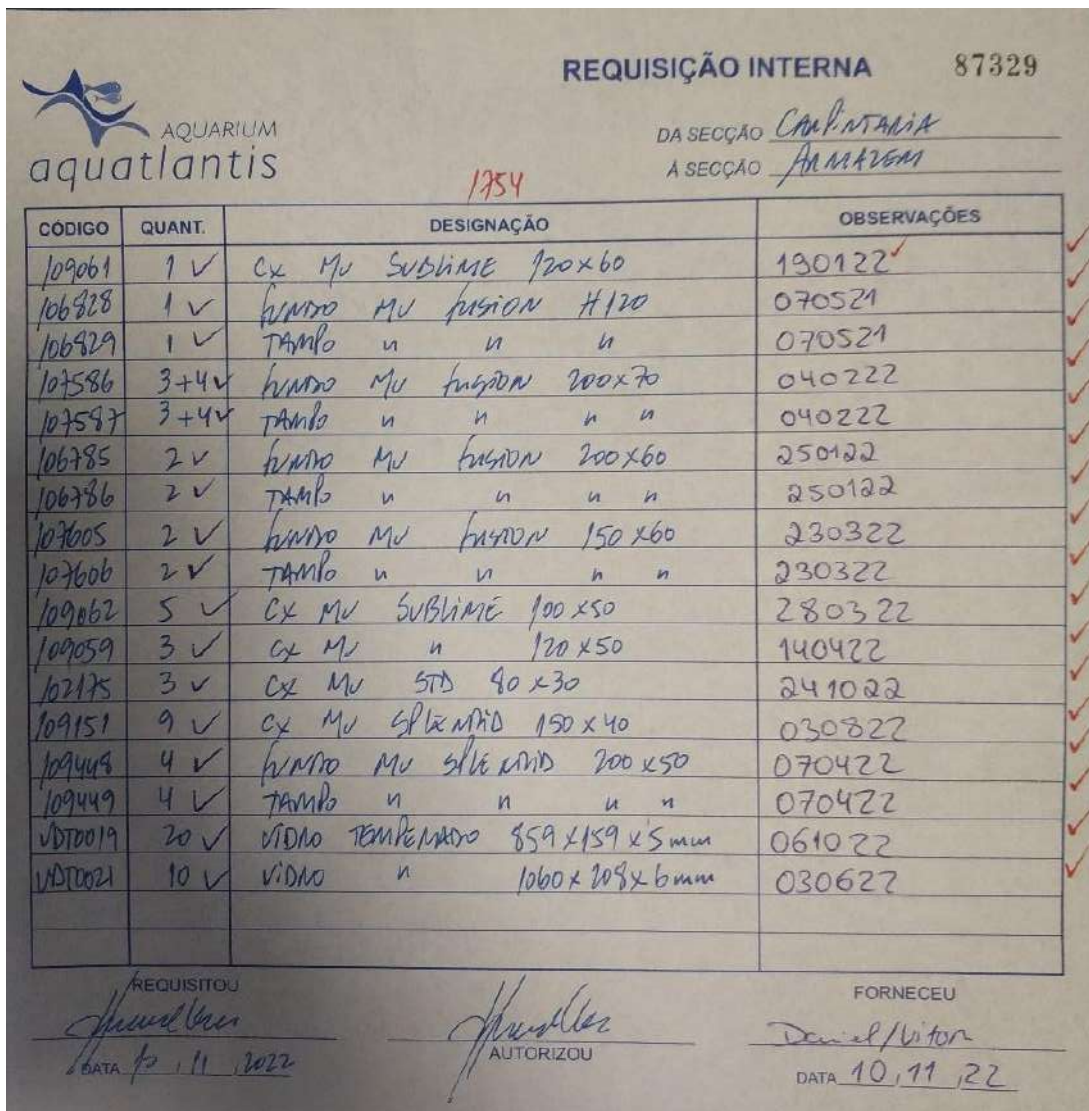 REQUISIÇÃO INTERNA 87329
AQUARIUM
aquatlantis
DA SECÇÃO CARPINTARIA
À SECÇÃO ARMAZEM
1754
CÓDIGO QUANT. DESIGNAÇÃO OBSERVAÇÕES
109061 1 ✓ CX MV SUBLIME 120x60 190122 ✓ ✓
106828 1 ✓ FUNDO MV FUSION H120 070521 ✓
106829 1 ✓ TAMPO " " " 070521 ✓
107586 3+4 ✓ FUNDO MV FUSION 200x70 040222 ✓
107587 3+4 ✓ TAMPO " " " " 040222 ✓
106785 2 ✓ FUNDO MV FUSION 200x60 250122 ✓
106786 2 ✓ TAMPO " " " " 250122 ✓
107605 2 ✓ FUNDO MV FUSION 150x60 230322 ✓
107606 2 ✓ TAMPO " " " " 230322 ✓
109062 5 ✓ CX MV SUBLIME 100x50 280322 ✓
109059 3 ✓ CX MV " 120x50 140422 ✓
102175 3 ✓ CX MV STD 80x30 241022 ✓
109151 9 ✓ CX MV SPLENDID 150x40 030822 ✓
109448 4 ✓ FUNDO MV SPLENDID 200x50 070422 ✓
109449 4 ✓ TAMPO " " " " 070422 ✓
VDT0019 20 ✓ VIDRO TEMPERADO 859x159x5mm 061022 ✓
VDT0021 10 ✓ VIDRO " 1060x208x6mm 030622 ✓
REQUISITOU
AUTORIZOU
FORNECEU
Daniel/Vitor
DATA 10, 11, 2022
DATA 10, 11, 22